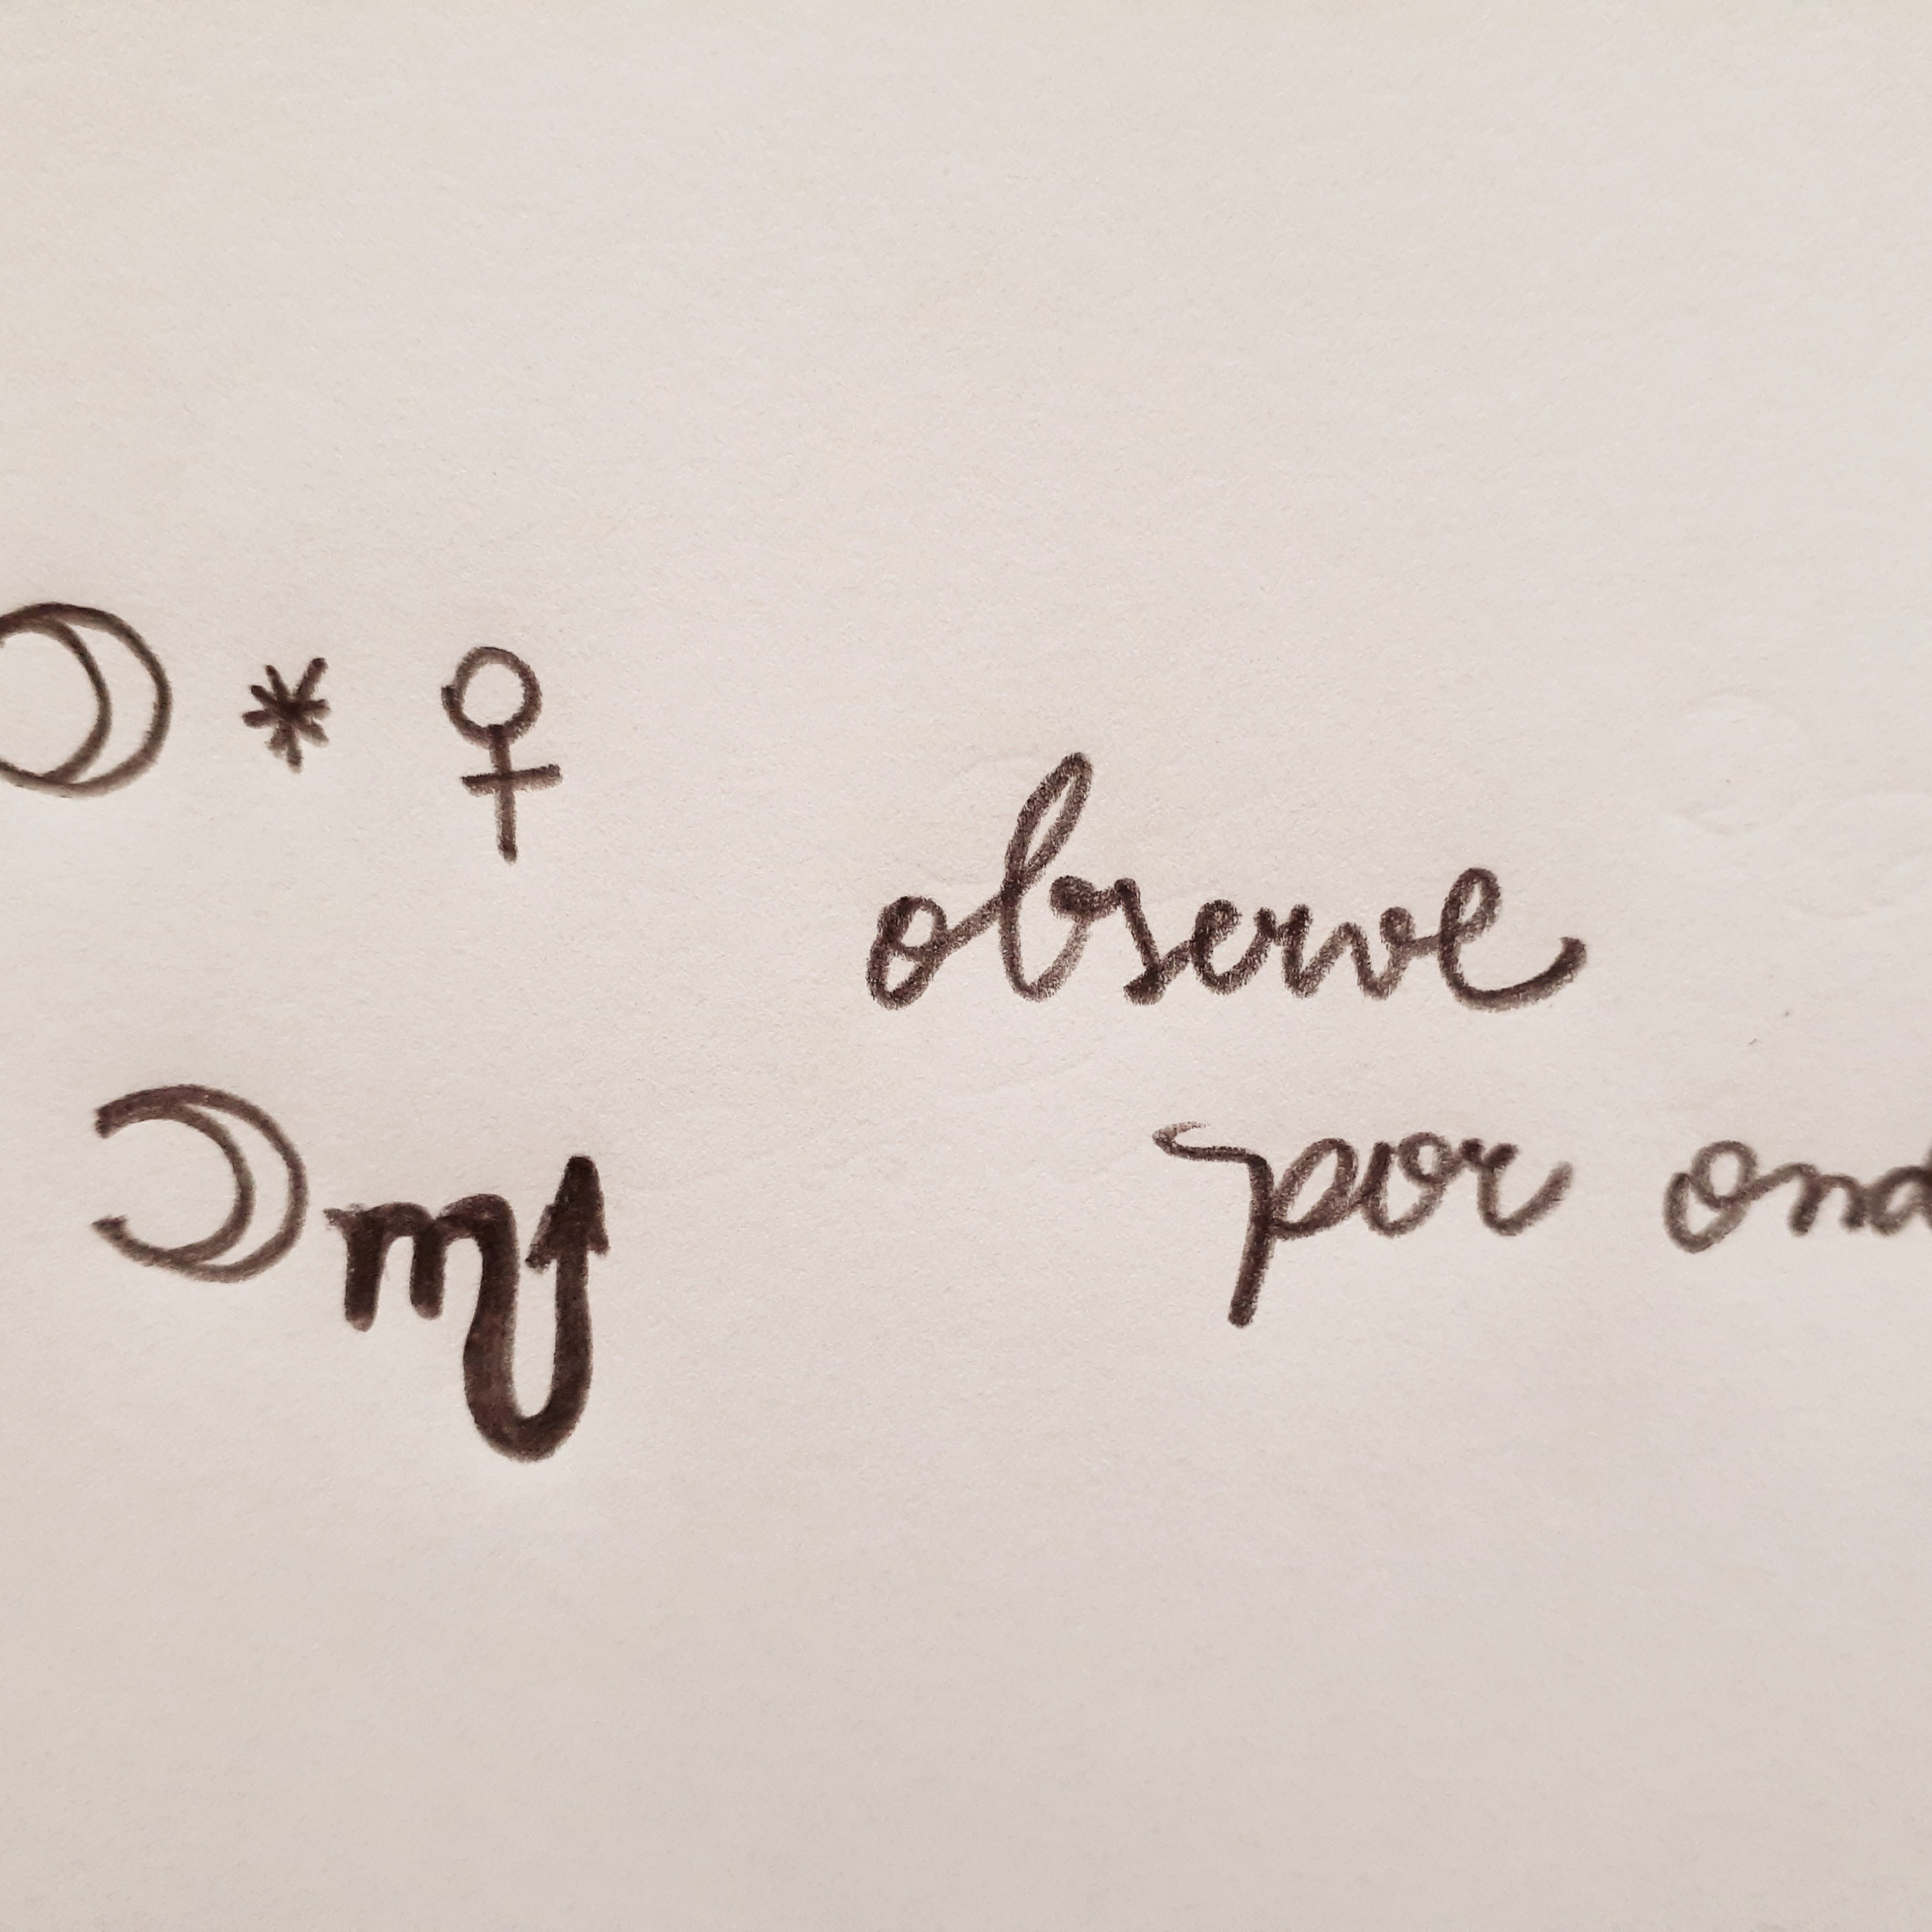 ☽ * ♀
observe
☽ ♏
por ond